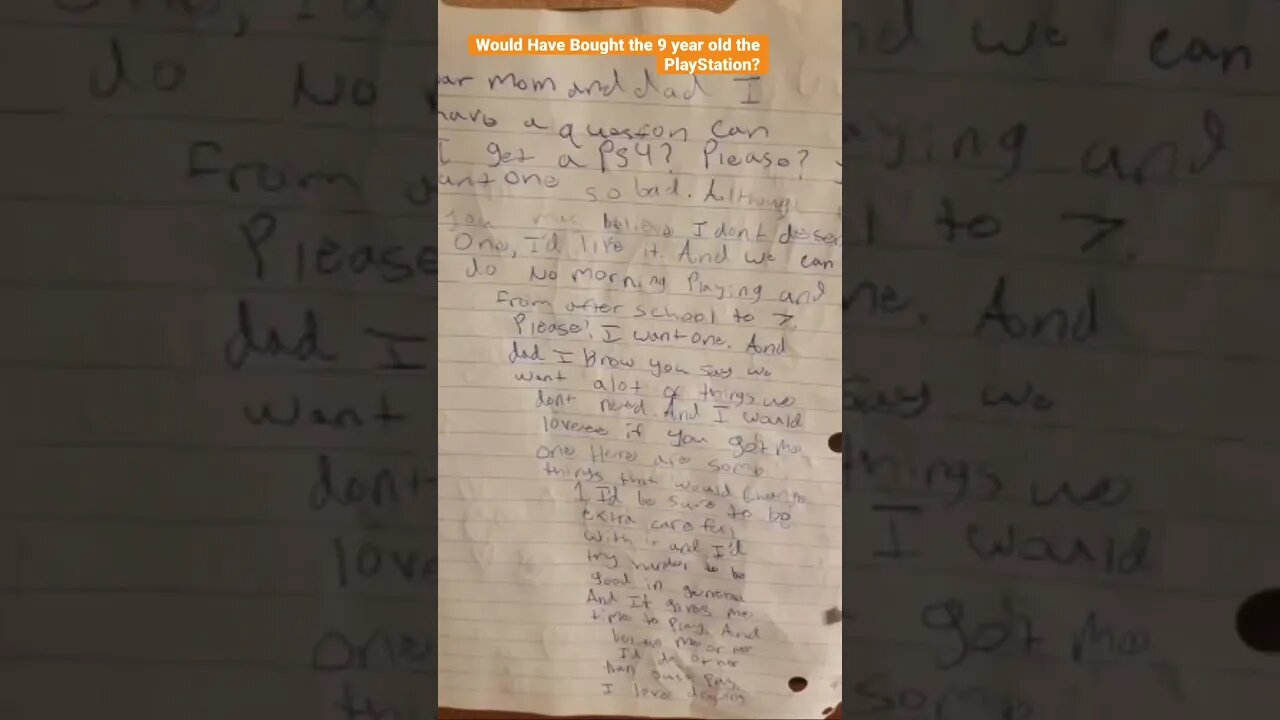 Would Have Bought the 9 year old the
PlayStation?
ar mom and dad I
have a queston can
I get a PS4? Please?
ant one so bad. Although
you believe I dont deser
One, I'd like it. And we can
do No morning Playing and
From after school to 7.
Please! I want one. And
dad I know you say we
want alot of things we
dont need. And I would
loveee if you got me
one Here are some
things that would change
1 I'd be sure to be
extra careful
with it and I'd
try harder to be
good in general
And It gives me
time to Play. And
believe me or not
I'd do other
than Just Play.
I love drawing